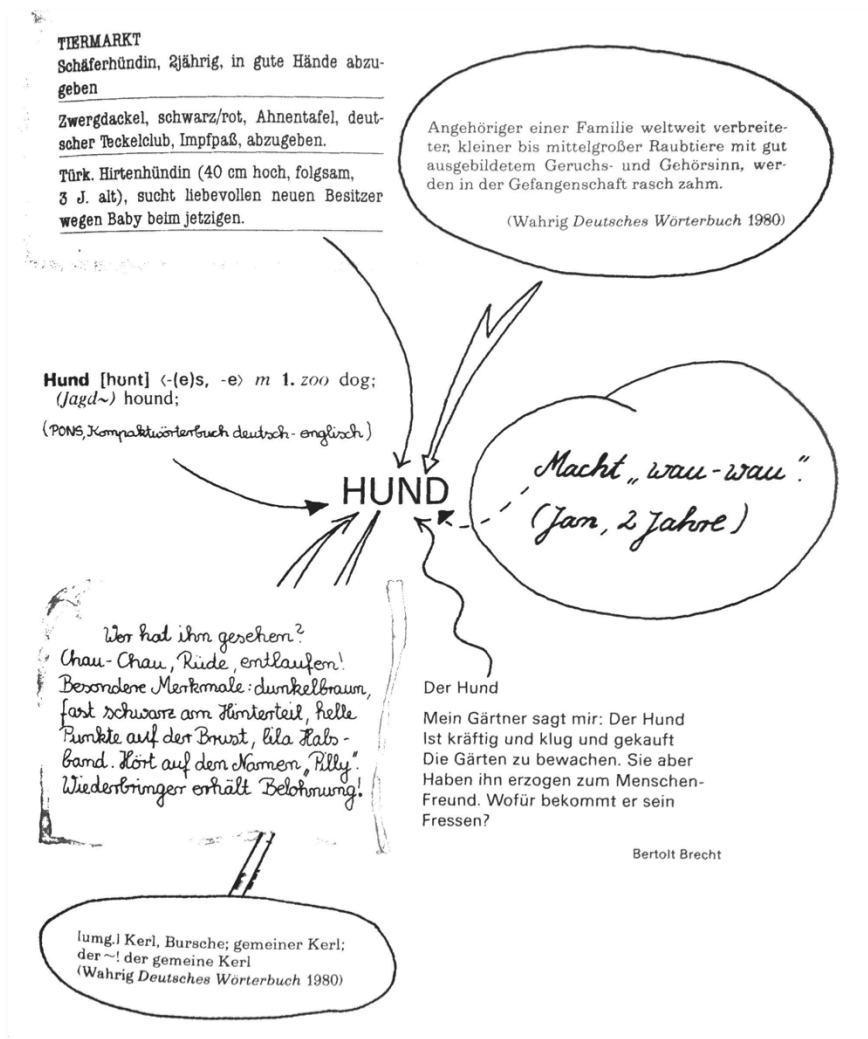 TIERMARKT
Schäferhündin, 2jährig, in gute Hände abzu-
geben
Zwergdackel, schwarz/rot, Ahnentafel, deut-
scher Teckelclub, Impfpaß, abzugeben.
Türk. Hirtenhündin (40 cm hoch, folgsam,
3 J. alt), sucht liebevollen neuen Besitzer
wegen Baby beim jetzigen.
Angehöriger einer Familie weltweit verbreite-
ter, kleiner bis mittelgroßer Raubtiere mit gut
ausgebildetem Geruchs- und Gehörsinn, wer-
den in der Gefangenschaft rasch zahm.
(Wahrig Deutsches Wörterbuch 1980)
Hund [hʊnt] ⟨-(e)s, -e⟩ m 1. zoo dog;
(Jagd~) hound;
(PONS, Kompaktwörterbuch deutsch-englisch)
HUND
Macht „wau-wau".
(Jan, 2 Jahre)
Wer hat ihn gesehen?
Chau-Chau, Rüde, entlaufen!
Besondere Merkmale: dunkelbraun,
fast schwarz am Hinterteil, helle
Punkte auf der Brust, lila Hals-
band. Hört auf den Namen „Pilly".
Wiederbringer erhält Belohnung!
Der Hund
Mein Gärtner sagt mir: Der Hund
Ist kräftig und klug und gekauft
Die Gärten zu bewachen. Sie aber
Haben ihn erzogen zum Menschen-
Freund. Wofür bekommt er sein
Fressen?
Bertolt Brecht
[umg.] Kerl, Bursche; gemeiner Kerl;
der ~! der gemeine Kerl
(Wahrig Deutsches Wörterbuch 1980)